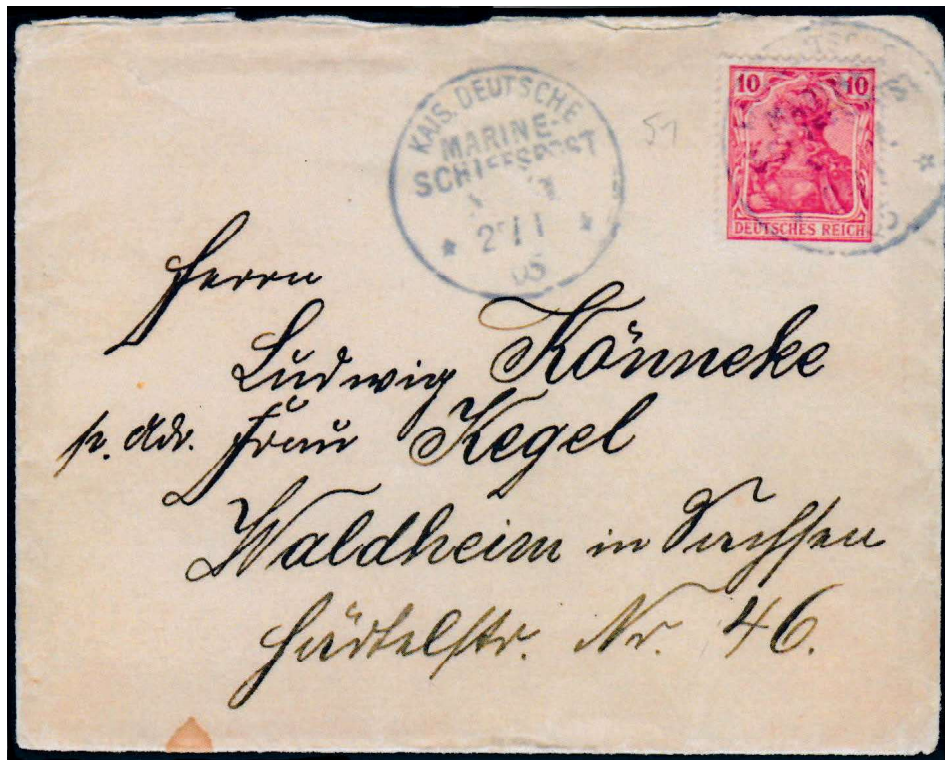 KAIS. DEUTSCHE
MARINE-
SCHIFFSPOST
* *
05
51
10 10
DEUTSCHES REICH
Herrn
Ludwig Könneke
p. Adr. Frau Kegel
Waldheim in Sachsen
Härtelstr. Nr. 46.